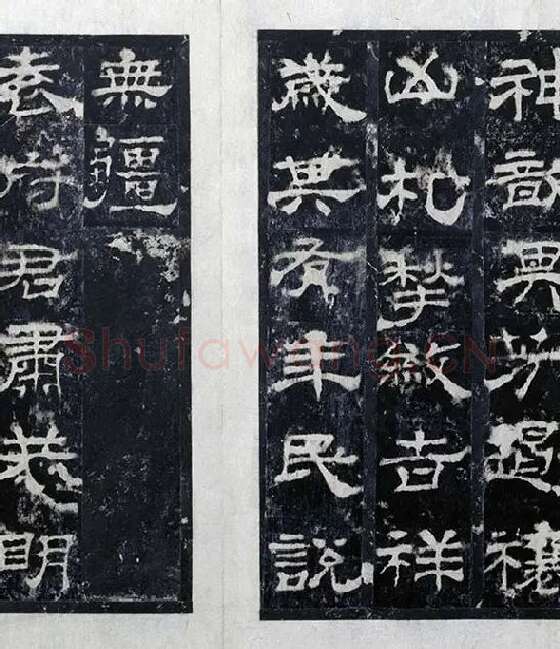 神歆其芳遏禳
凶札揫斂吉祥
歲其有年民說
無疆
袁府君肅恭明
Shufawang.CN